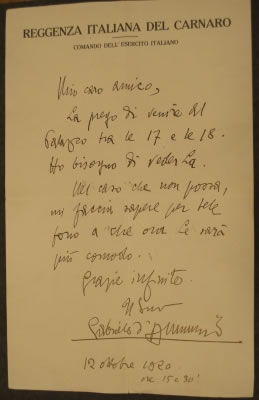 REGGENZA ITALIANA DEL CARNARO
COMANDO DELL'ESERCITO ITALIANO
Mio caro amico,
La prego di venire al
Palazzo tra le 17 e le 18.
Ho bisogno di vederLa.
Nel caso che non possa,
mi faccia sapere per tele
fono a che ora Le sarà
più comodo.
Grazie infinite.
Il Suo
Gabriele d'Annunzio
12 ottobre 1920.
ore 15 e 30'